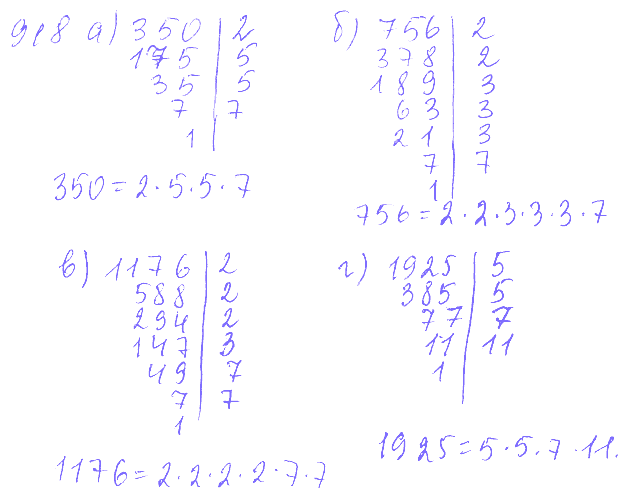 918 а) 350 | 2
175 | 5
35 | 5
7 | 7
1
350 = 2 · 5 · 5 · 7
б) 756 | 2
378 | 2
189 | 3
63 | 3
21 | 3
7 | 7
1
756 = 2 · 2 · 3 · 3 · 3 · 7
в) 1176 | 2
588 | 2
294 | 2
147 | 3
49 | 7
7 | 7
1
1176 = 2 · 2 · 2 · 2 · 7 · 7
г) 1925 | 5
385 | 5
77 | 7
11 | 11
1
1925 = 5 · 5 · 7 · 11.